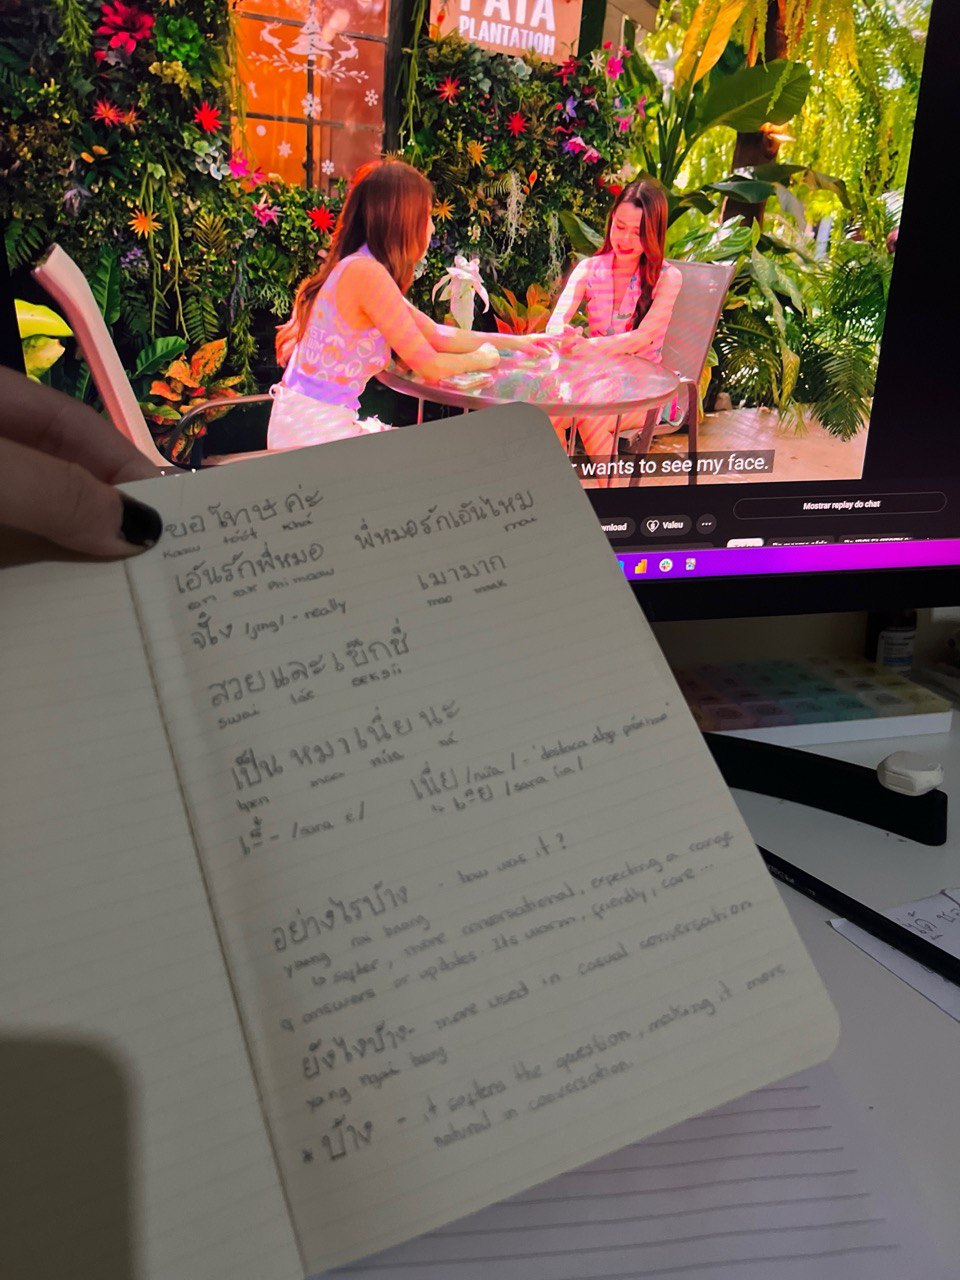 PLANTATION
r wants to see my face.
Mostrar replay do chat
wnload
Valeu
ขอโทษค่ะ
Kaaw tôot kha
เอ้นรักพี่หมอ
พี่หมอรักเอ้นไหม
mai
เมามาก
mao maak
จริง /jing/ - really
สวยและเซ็กซี่
swai láe seksii
เป็นหมาเนี่ยนะ
bpen maa nîia ná
เนี่ย /nîia/ - 'destaca algo próximo'
อย่างไรบ้าง - how was it?
yaang rai baang
↳ softer, more conversational, expecting a range
of answers or updates. Its warm, friendly, care...
ยังไงบ้าง - more used in casual conversation
yang ngai bang
* บ้าง - it softens the question, making it more
natural in conversation.